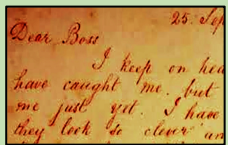 25. Sep
Dear Boss
I keep on hea
have caught me but
me just yet. I have
they look so clever an